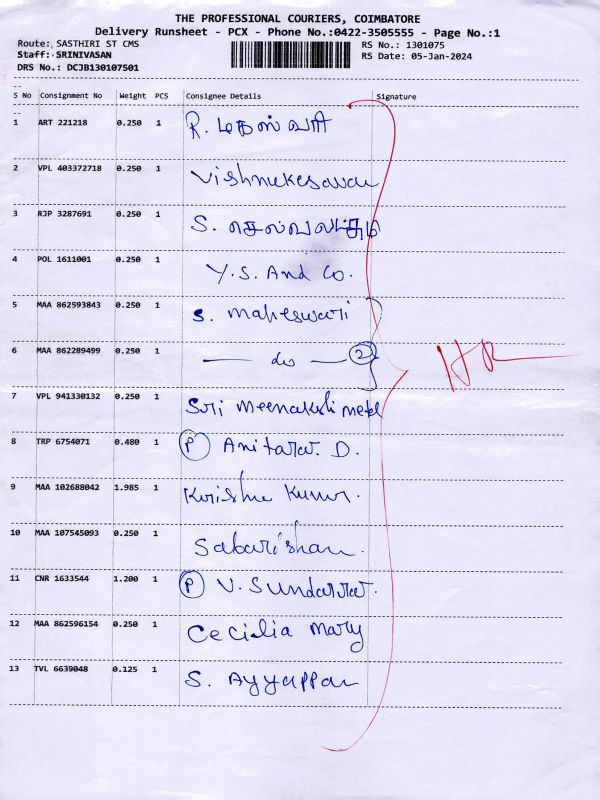 THE PROFESSIONAL COURIERS, COIMBATORE
Delivery Runsheet - PCX - Phone No.:0422-3505555 - Page No.:1
Route: SASTHIRI ST CMS RS No.: 1301075
Staff: SRINIVASAN RS Date: 05-Jan-2024
DRS No.: DCJB130107501
S No Consignment No Weight PCS Consignee Details Signature
1 ART 221218 0.250 1 R.
2 VPL 403372718 0.250 1 Vishnukesavan
3 RJP 3287691 0.250 1 S.
4 POL 1611001 0.250 1 Y.S. And Co.
5 MAA 862593843 0.250 1 S. Maheswari
6 MAA 862289499 0.250 1 — do — 2
7 VPL 941330132 0.250 1 Sri Meenakshi Metel
8 TRP 6754071 0.480 1 P D.
9 MAA 102688042 1.985 1 Krishna Kumar.
10 MAA 107545093 0.250 1 Sabarishan.
11 CNR 1633544 1.200 1 P V. Sundarrar.
12 MAA 862596154 0.250 1 Cecilia Mary
13 TVL 6639048 0.125 1 S. Ayyappan